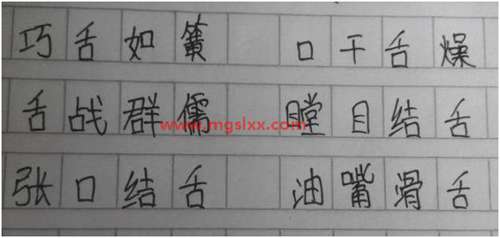 巧舌如簧 口干舌燥
舌战群儒 瞠目结舌
www.mgslxx.com
张口结舌 油嘴滑舌